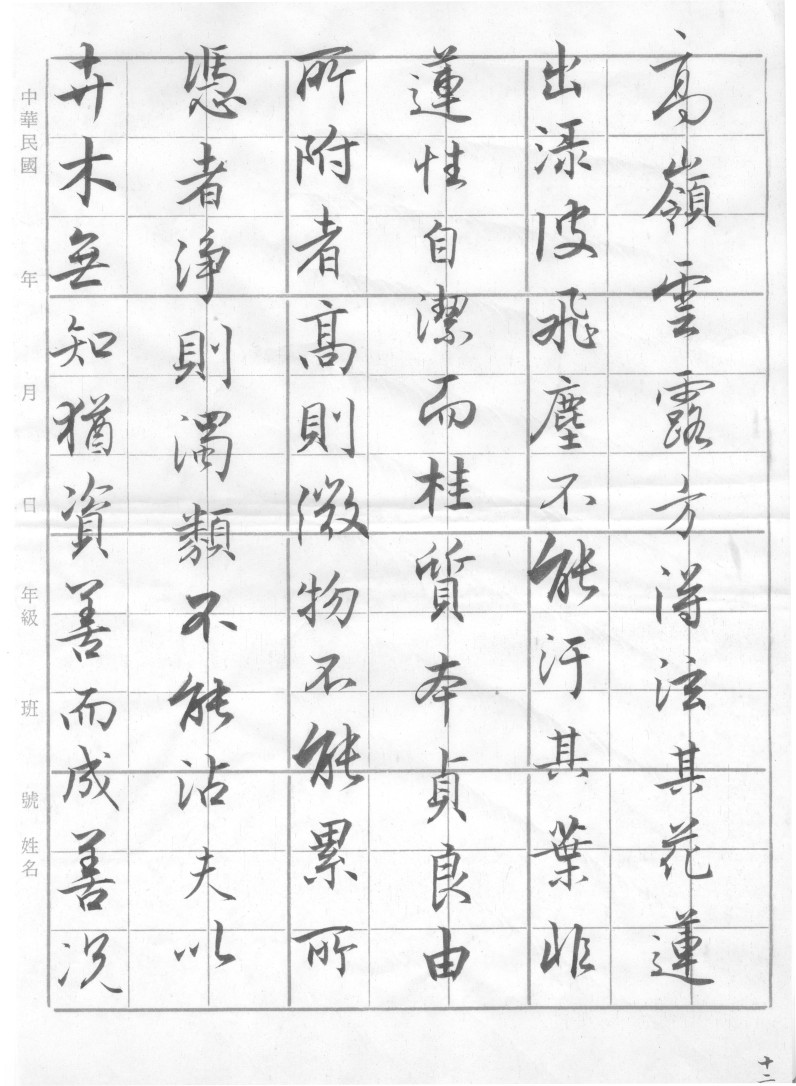 高嶺雲露方得泫其花蓮
出淥波飛塵不能汙其葉非
蓮性自潔而桂質本貞良由
所附者高則微物不能累所
憑者淨則濁類不能沾夫以
卉木無知猶資善而成善況
中華民國 年 月 日 年級 班 號 姓名
十二